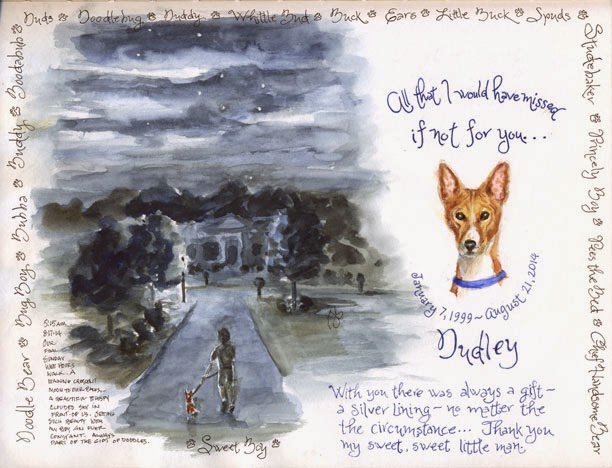 Duds Doodlebug Duddy Whittle Bud Buck Ears Little Buck Spuds
Studebaker Princely Boy Pees the Bed Chief Handsome Bear
Doodle Bear Bug Boy Bubba Buddy Boodabub
All that I would have missed
if not for you...
January 7, 1999 ~ August 21, 2014
Dudley
With you there was always a gift ~
a silver lining ~ no matter the
the circumstance... Thank you
my sweet, sweet little man.
5:15 AM
8-17-14
OUR
FINAL
SUNDAY
WEE HOURS
WALK... A
WANING CRESCENT
MOON TO OUR BACKS...
A BEAUTIFUL WHISPY
CLOUDED SKY IN
FRONT OF US. SEEING
SUCH BEAUTY WITH
MY BOY AN EVER
CONSTANT. ALWAYS
PART OF THE GIFT OF DOODLES.
Sweet Boy